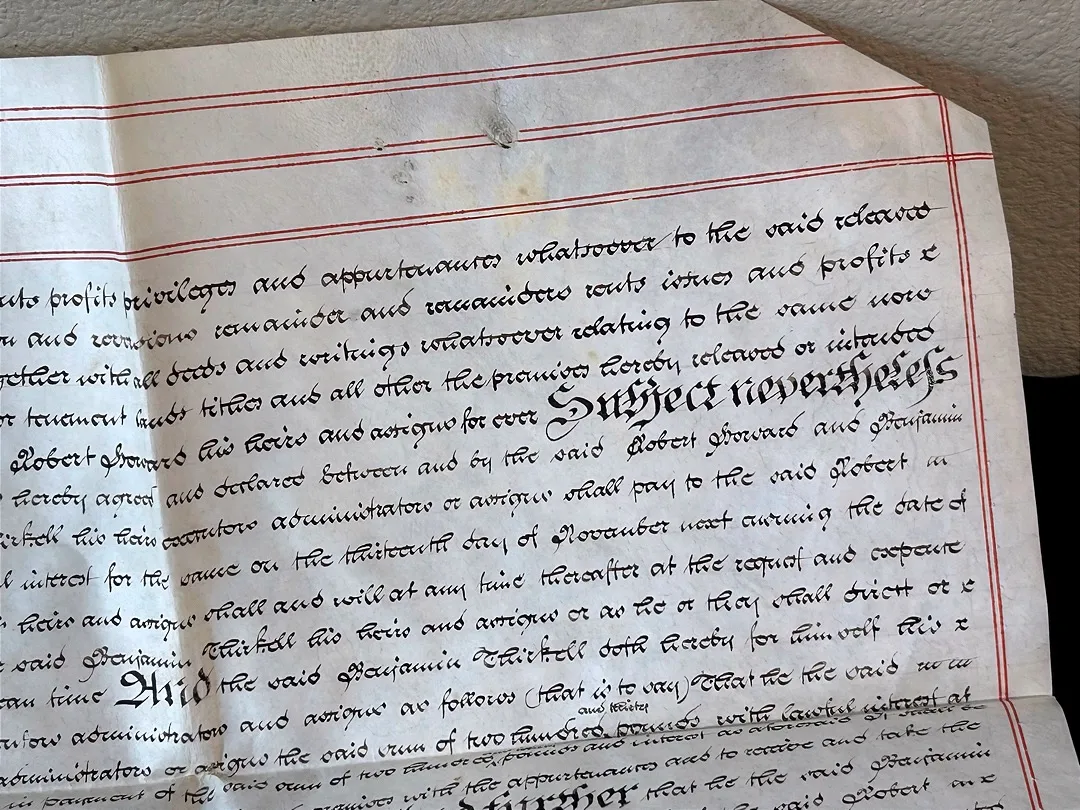 profits privileges and appurtenances whatsoever to the said released
and reversions remainder and remainders rents issues and profits
together with all deeds and writings whatsoever relating to the same now
or tenement lands tithes and all other the premises hereby released or intended
Robert Howard his heirs and assigns for ever Subject nevertheless
hereby agreed and declared between and by the said Robert Howard and Benjamin
Thirkell his heirs executors administrators or assigns shall pay to the said Robert
interest for the same on the thirteenth day of November next ensuing the date of
heirs and assigns shall and will at any time thereafter at the request and expence
said Benjamin Thirkell his heirs and assigns or as he or they shall direct or
mean time And the said Benjamin Thirkell doth hereby for himself his
administrators and assigns as follows (that is to say) That he the said
and ninety
administrators or assigns the said sum of two hundred pounds with lawful interest at
in payment of the said sum of two hundred pounds and interest as aforesaid
premises with the appurtenances and to receive and take the
further that he the said Benjamin
the said Robert